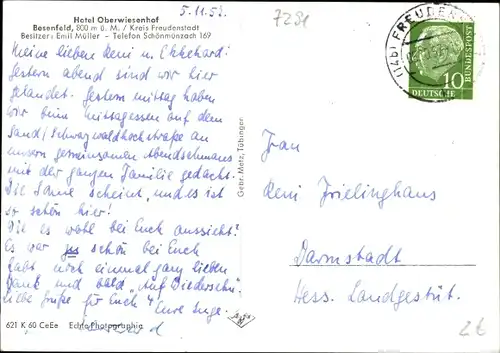 5.11.5
7291
Hotel Oberwiesenhof
Besenfeld, 800 m ü. M. / Kreis Freudenstadt
Besitzer: Emil Müller - Telefon Schönmünzach 169
Meine lieben Reni u. Ekkehard!
Gestern abend sind wir hier
gelandet. Gestern mittag haben
wir beim Mittagessen auf dem
Sand / Schwarzwaldhochstraße an
unsern gemeinsamen Abendschmaus
mit der ganzen Familie gedacht.
Die Sonne scheint, und es ist
so schön hier!
Wie es wohl bei Euch aussieht?
Es war zu schön bei Euch
habt noch einmal ganz lieben
Dank und bald "auf Wiedersehn".
Liebe Grüße für Euch 4 Eure Inge.
621 K 60 CeEe Echte Photographie
Gebr. Metz, Tübingen
(14b) FREUDEN
DEUTSCHE
BUNDESPOST
10
Frau
Reni Frielinghaus
Darmstadt
Hess. Landgestüt.
2€